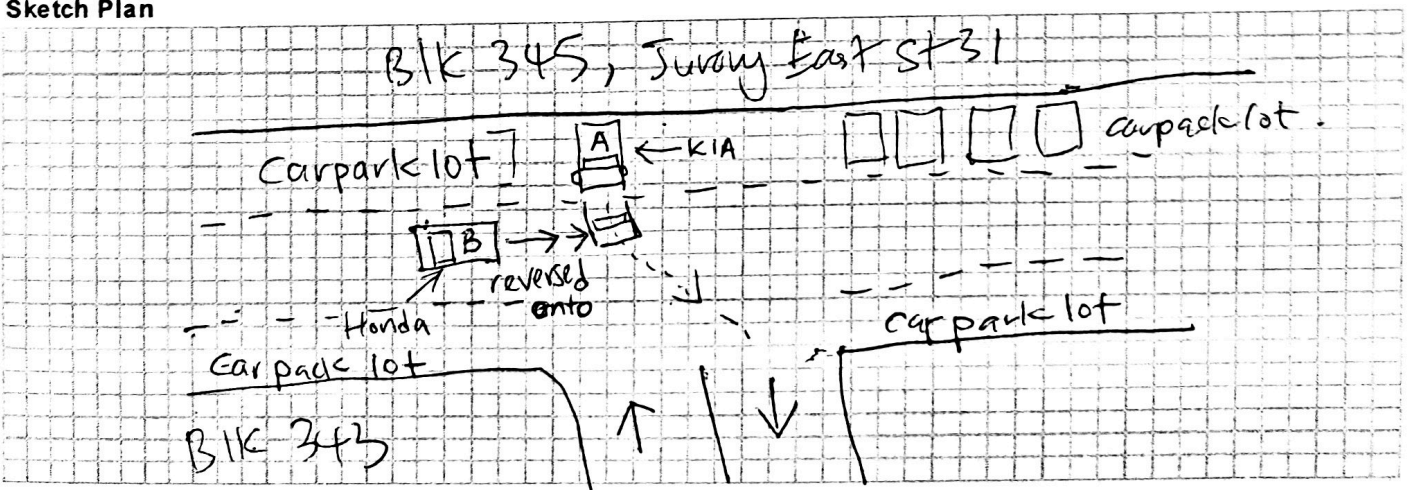 Sketch Plan
Blk 345, Jurong East St 31
Carpark lot
A
← KIA
carpack lot.
B
reversed
onto
Honda
carpark lot
Carpack lot
Blk 343